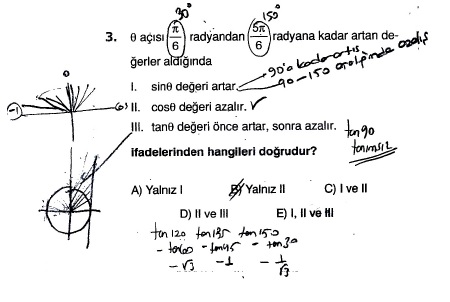 30° 150°
3. θ açısı π/6 radyandan 5π/6 radyana kadar artan de-
ğerler aldığında
I. sinθ değeri artar. 90'a kadar artış
90-150 aralığında azalış
II. cosθ değeri azalır. ✓
III. tanθ değeri önce artar, sonra azalır. tan90
tanımsız
ifadelerinden hangileri doğrudur?
A) Yalnız I B) Yalnız II C) I ve II
D) II ve III E) I, II ve III
tan120 tan135 tan150
-tan60 -tan45 -tan30
-√3 -1 -1/√3
0
-1